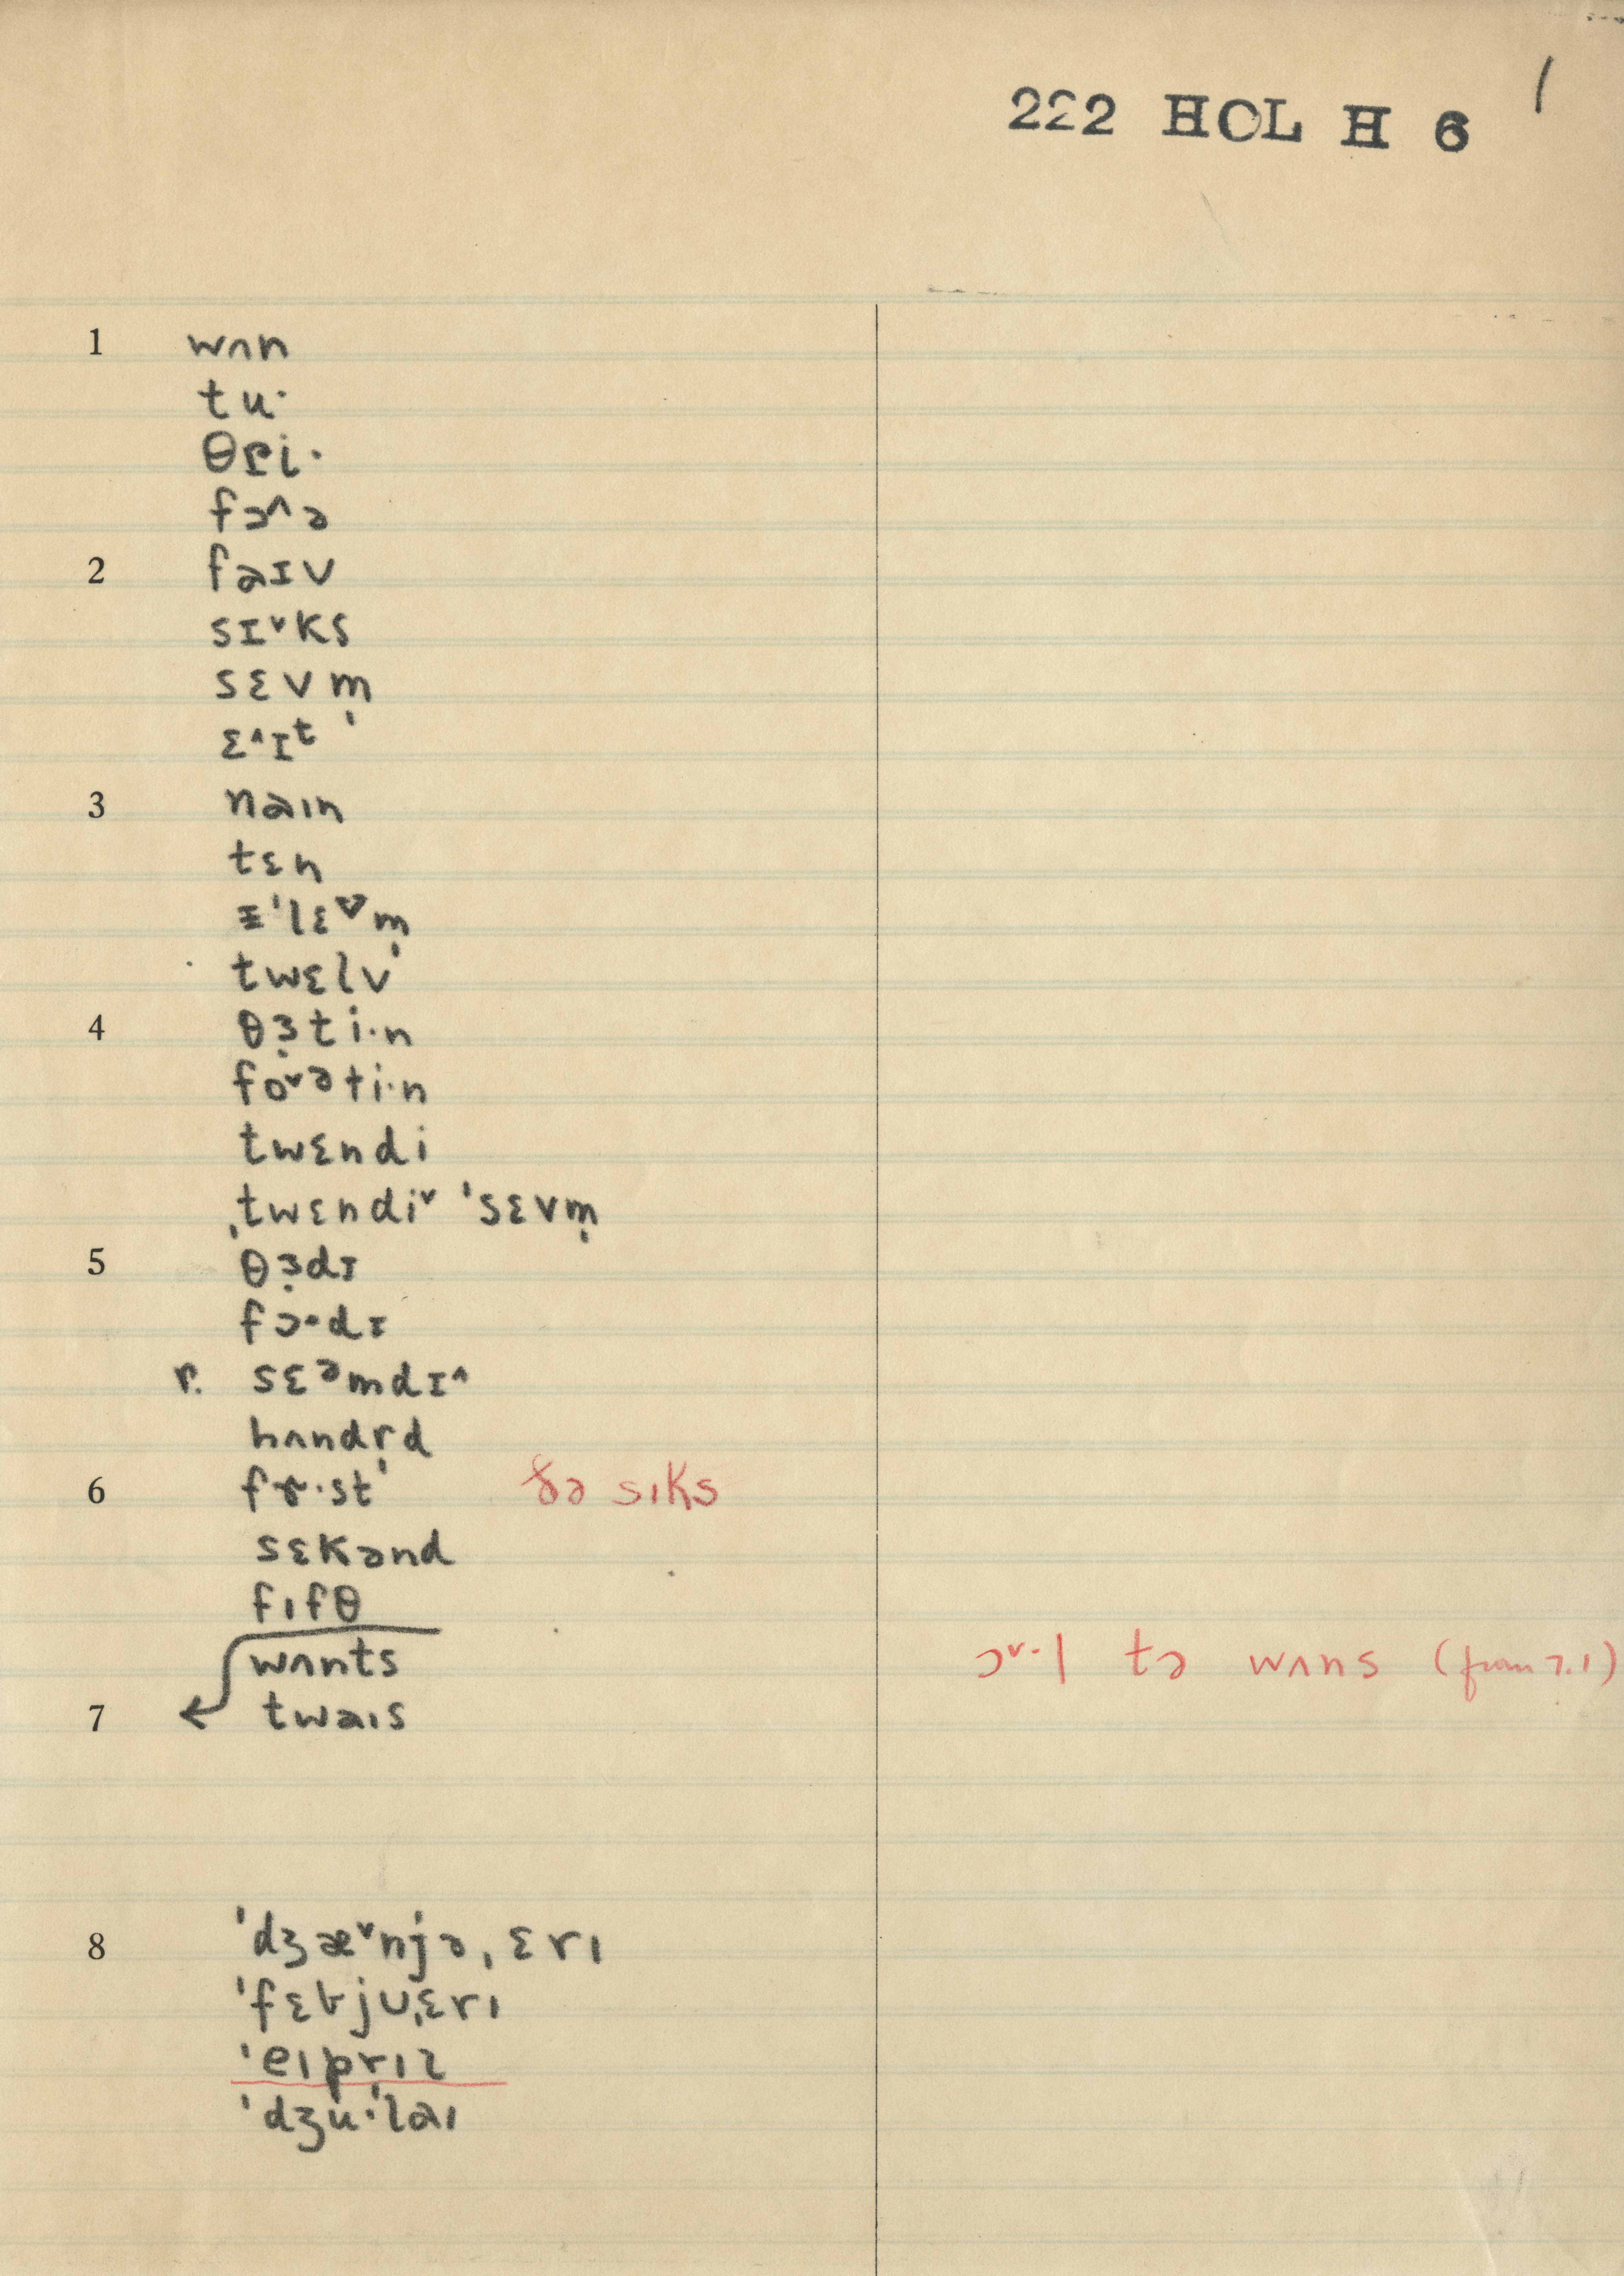 222 HOL H 6 1
1 wʌn
tu·
θɾi·
fɔ^ə
2 faɪv
sɪˇks
sɛvm̩
ɛ^ɪᵗ
3 naɪn
tɛn
ɪ'lɛᵛm̩
twɛlv
4 θɜ̣ti·n
foˇəti·n
twɛndi
ˌtwɛndiˇ 'sɛvm̩
5 θɜ̣dɪ
fɔ·dɪ
r. sɛᵊmdɪ^
hʌndr̩d
6 fɝ·st ðə sɪks
sɛkənd
fɪfθ
wʌnts ɔˇ·l tə wʌns (from 7.1)
7 twaɪs
8 'dʒæˇnjəˌɛrɪ
'fɛbjʊˌɛrɪ
'eɪprɪl
'dʒu·'laɪ